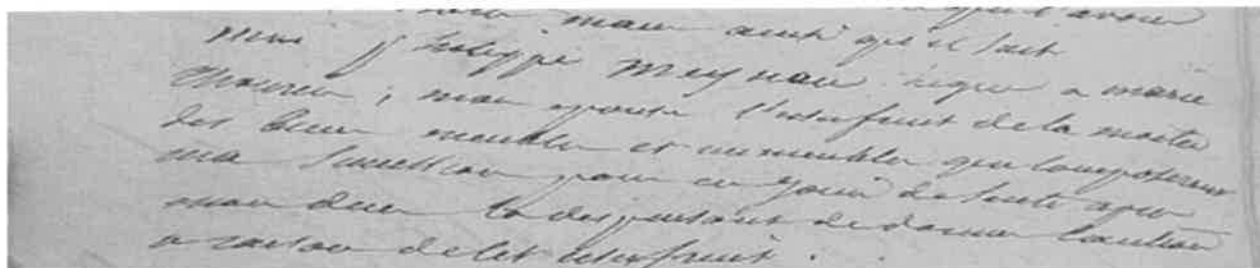 main ainsi qu'il suit
Philippe Meynau legue a marie
mon epouse l'usufruit de la moitie
des biens meubles et immeubles qui composeront
ma succession pour en jouir de suite apres
mon deces la dispensant de donner caution
a raison de cet usufruit.